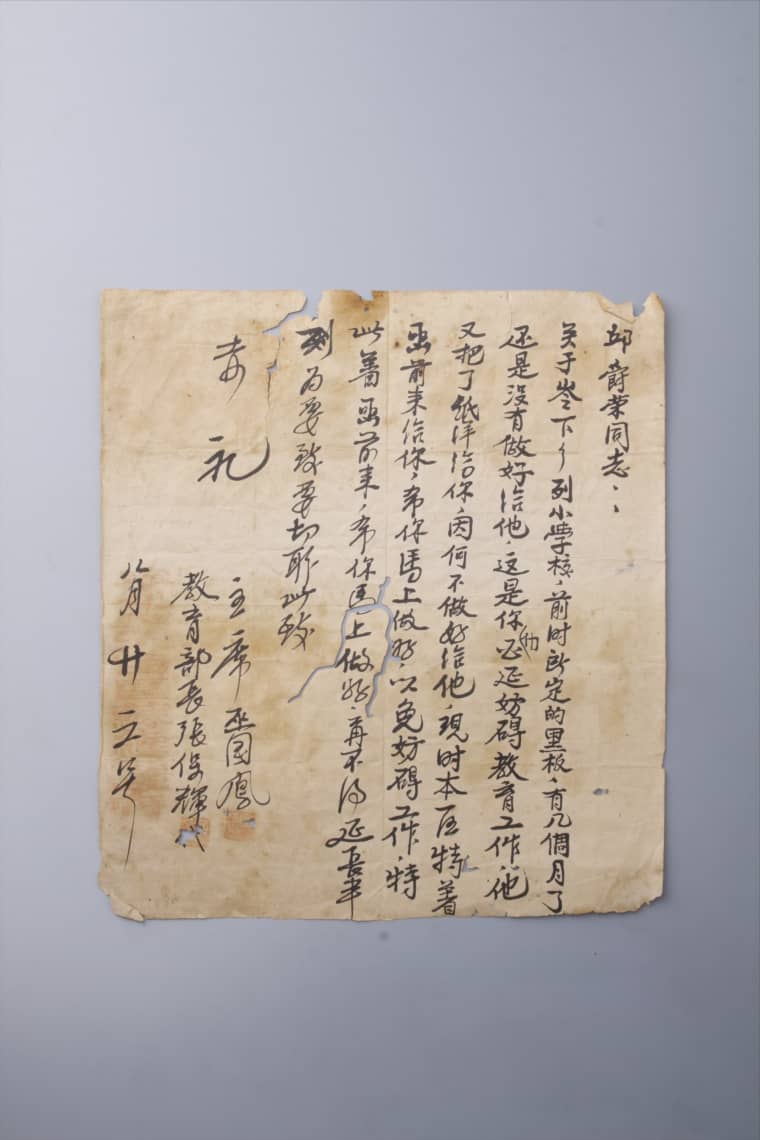 邱蔚荣同志：
关于岺下乡列小学校，前时所定的黑板，有几個月了
还是没有做好给他，这是你怠工延妨碍教育工作，他
又把了纸洋给你，因何不做好给他，現时本区特着
函前来给你，希你馬上做好，以免妨碍工作，特
此著函前来，希你馬上做好，再不得延吾半
刻为要致要切耶此致
赤礼
主席巫国鳳
教育部長張保輝代
八月廿三号